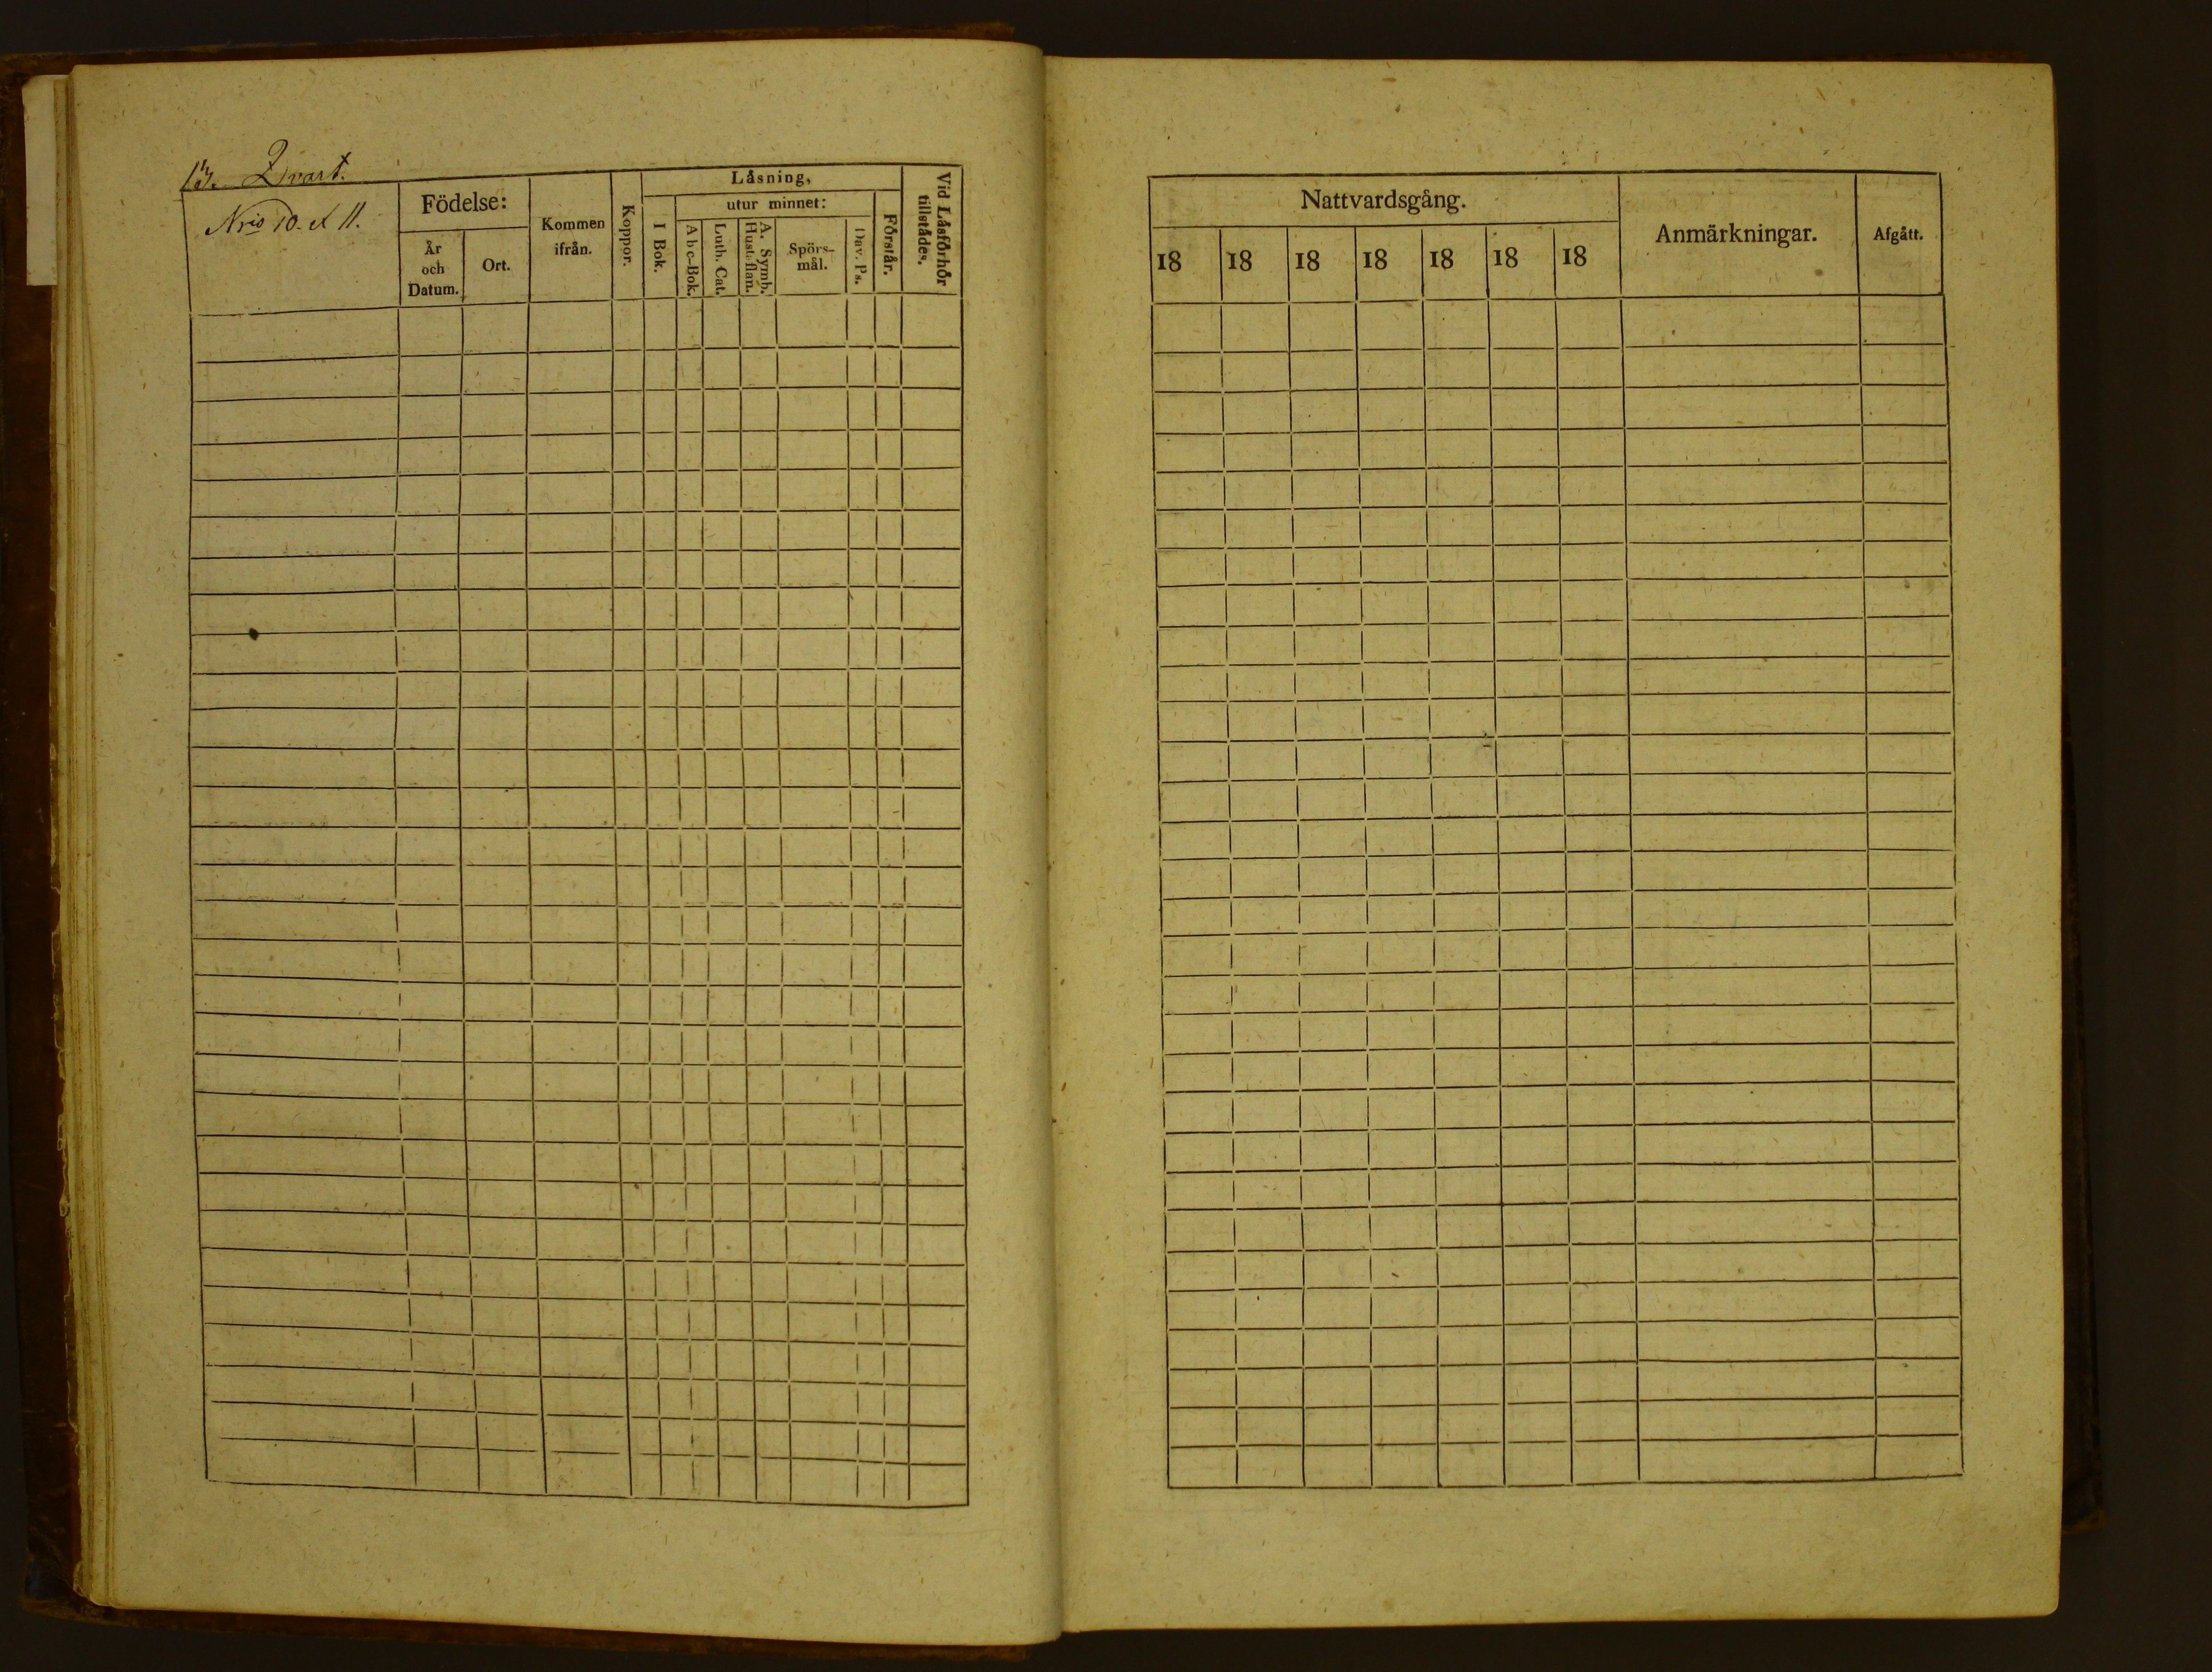 13. Qvart.
Nris 10. et 11.
Födelse:
År
och
Datum.
Ort.
Kommen
ifrån.
Koppor.
Låsning,
I Bok.
utur minnet:
A b c-Bok.
Luth. Cat.
A. Symb.
Hust. flam.
Spörs-
mål.
Dav. Ps.
Förstår.
Vid Låsförhör
tillstådes.
Nattvardsgång.
18 18 18 18 18 18 18
Anmärkningar.
Afgått.